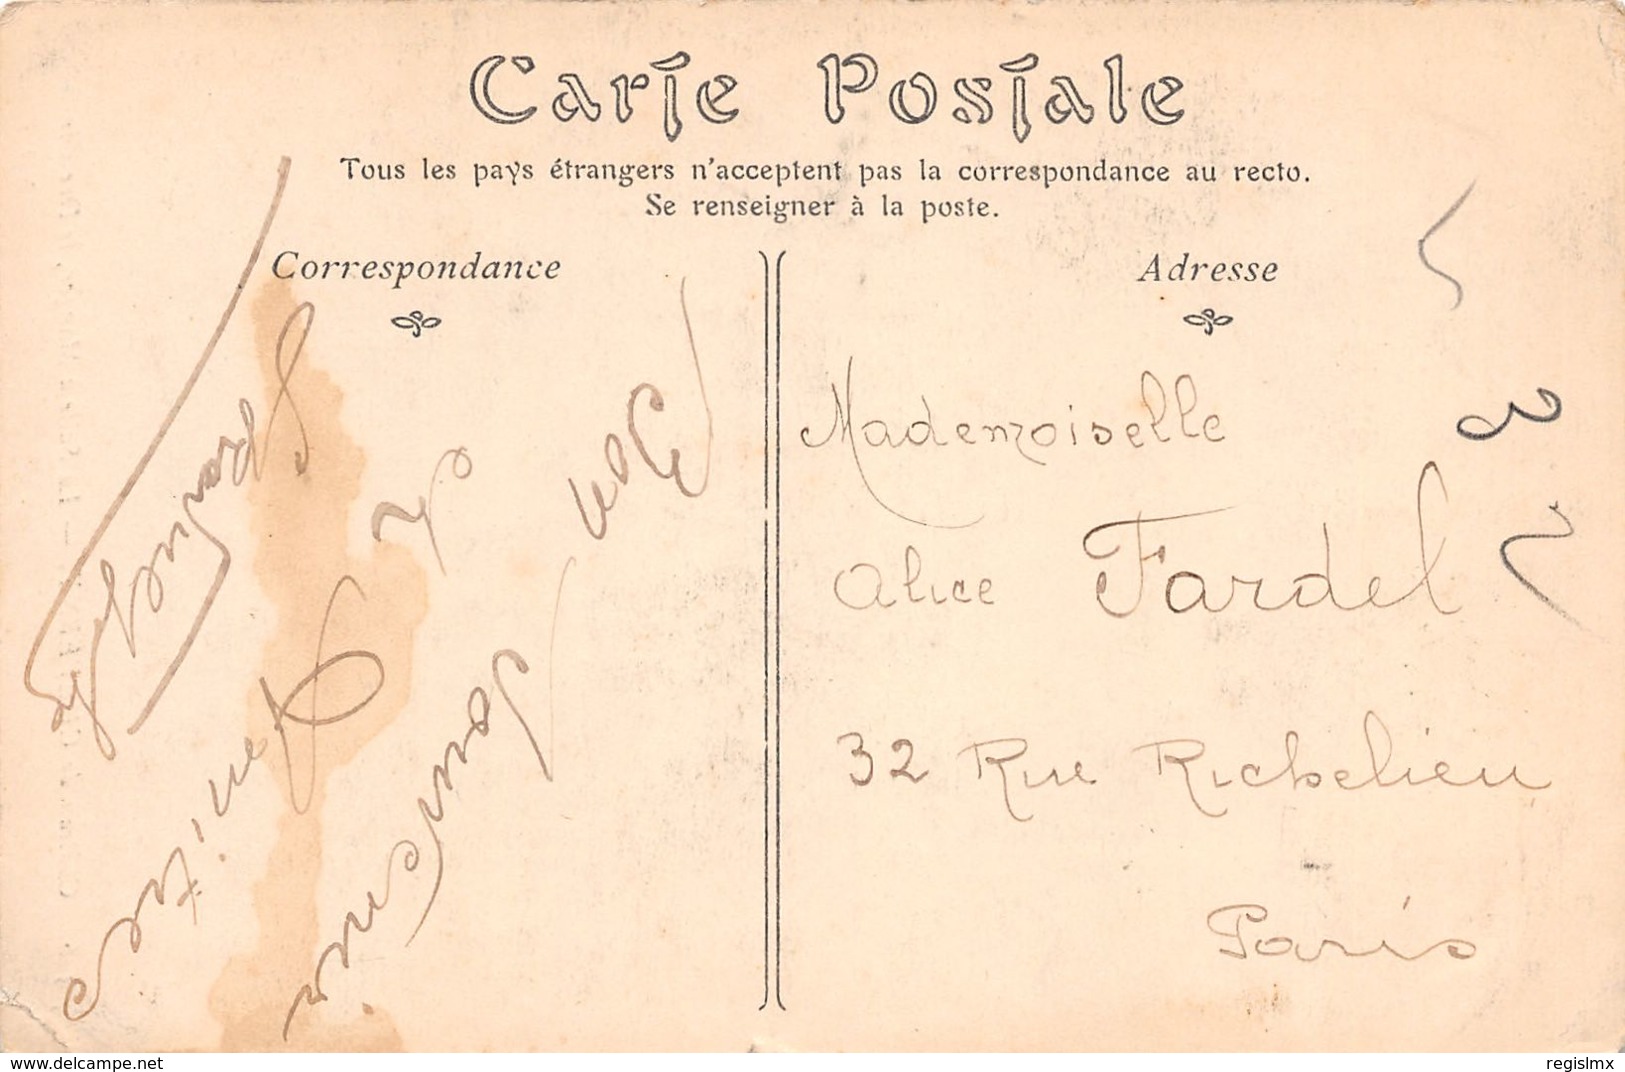 Carte Postale
Tous les pays étrangers n'acceptent pas la correspondance au recto.
Se renseigner à la poste.
Correspondance
Adresse
Bon Souvenir
de
Mademoiselle
Alice Fardel
32 Rue Richelieu
Paris
www.delcampe.net
regislmx